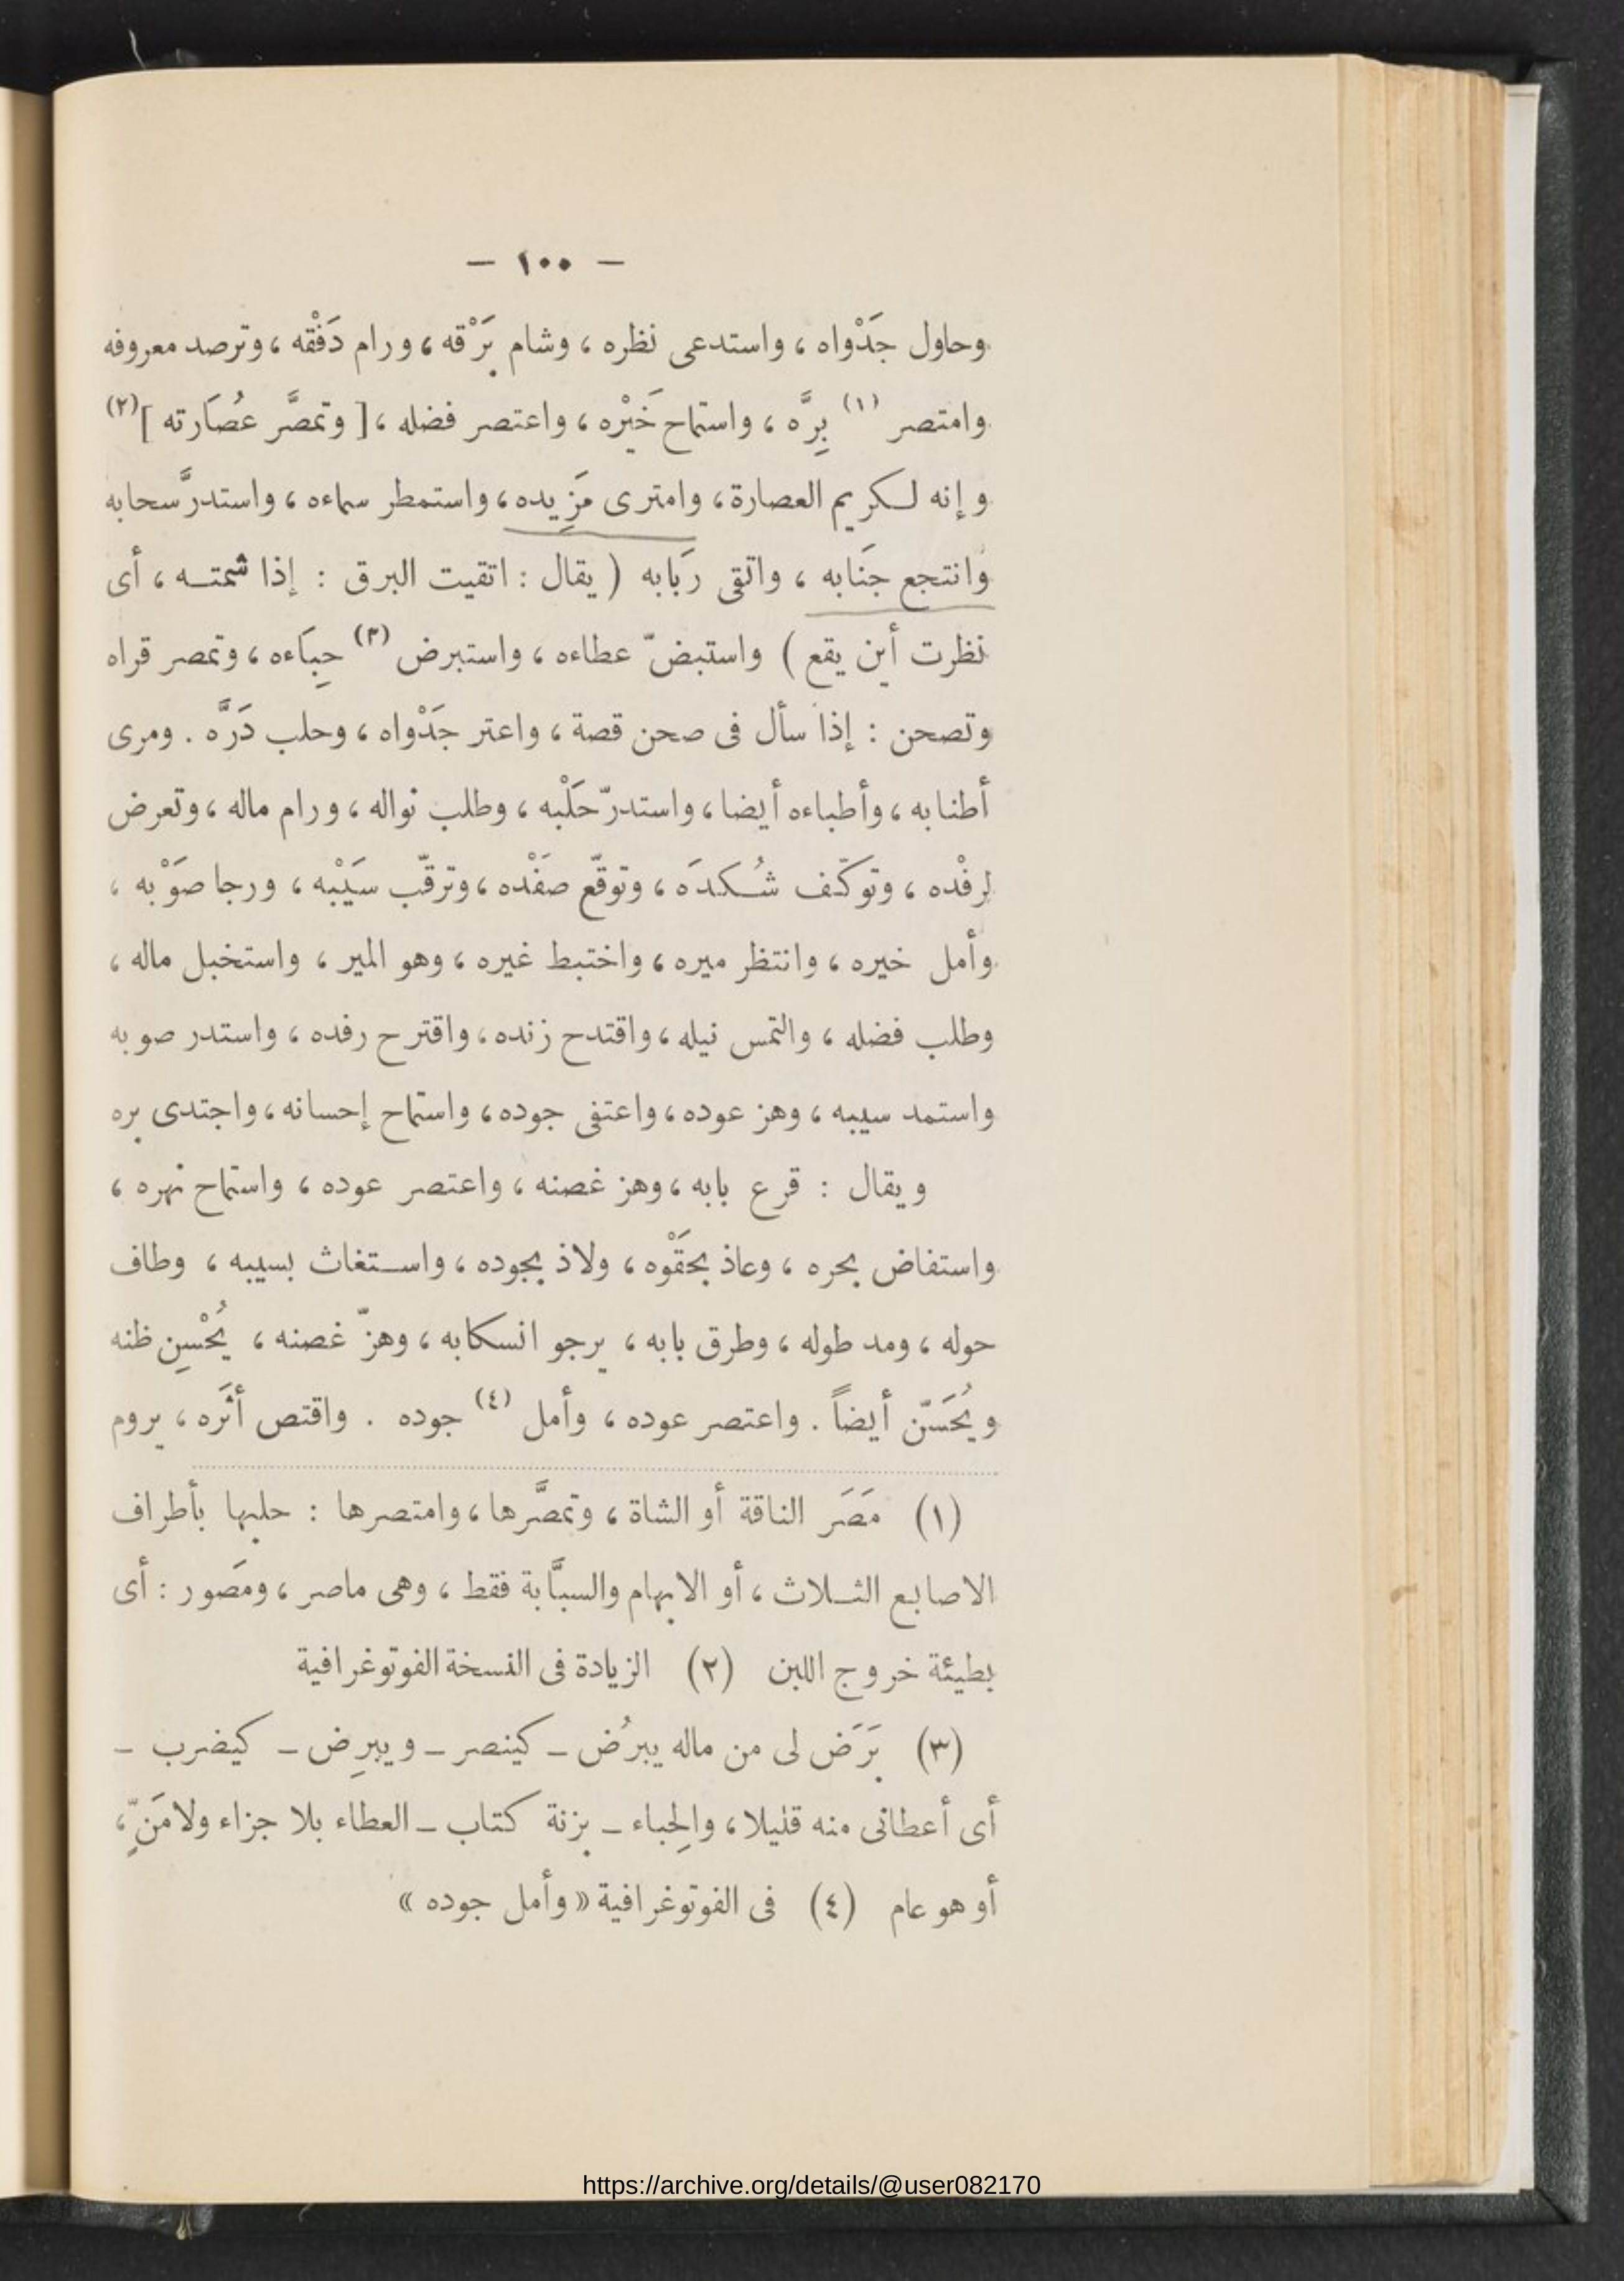 — ١٠٠ —
وحاول جَدْواه ، واستدعى نظره ، وشام بَرْقه ، ورام دَفْقه ، وترصد معروفه
وامتصر (١) بِرَّه ، واستماح خَيْره ، واعتصر فضله ، [ وتمصَّر عُصَارته ] (٢)
وإنه لكريم العصارة ، وامترى مَزِيده ، واستمطر سماءه ، واستدرَّ سحابه
وانتجع جنَابه ، واتقى رَبَابه ( يقال : اتقيت البرق : إذا شمته ، أى
نظرت أين يقع ) واستبضّ عطاءه ، واستبرض (٣) حِبَاءه ، وتمصر قراه
وتصحن : إذا سأل فى صحن قصة ، واعتر جَدْواه ، وحلب دَرَّه . ومرى
أطنابه ، وأطباءه أيضا ، واستدرّ حَلْبه ، وطلب نواله ، ورام ماله ، وتعرض
لرِفْده ، وتوكّف شُكدَه ، وتوقّع صَفْده ، وترقّب سَيْبه ، ورجا صَوْبه ،
وأمل خيره ، وانتظر ميره ، واختبط غيره ، وهو المير ، واستخبل ماله ،
وطلب فضله ، والتمس نيله ، واقتدح زنده ، واقترح رفده ، واستدر صوبه
واستمد سيبه ، وهز عوده ، واعتفى جوده ، واستماح إحسانه ، واجتدى بره
ويقال : قرع بابه ، وهز غصنه ، واعتصر عوده ، واستماح نهره ،
واستفاض بحره ، وعاذ بحَقْوه ، ولاذ بجوده ، واستغاث بسيبه ، وطاف
حوله ، ومد طوله ، وطرق بابه ، يرجو انسكابه ، وهزّ غصنه ، يُحْسِن ظنه
ويُحَسّن أيضاً . واعتصر عوده ، وأمل (٤) جوده . واقتص أثَره ، يروم
(١) مَصَر الناقة أو الشاة ، وتمصَّرها ، وامتصرها : حلبها بأطراف
الاصابع الثلاث ، أو الابهام والسبَّابة فقط ، وهى ماصر ، ومَصور : أى
بطيئة خروج اللبن (٢) الزيادة فى النسخة الفوتوغرافية
(٣) بَرَض لى من ماله يبرُض – كينصر – ويبرِض – كيضرب –
أى أعطانى منه قليلا ، والحِباء – بزنة كتاب – العطاء بلا جزاء ولا مَنٍّ ،
أو هو عام (٤) فى الفوتوغرافية « وأمل جوده »
https://archive.org/details/@user082170